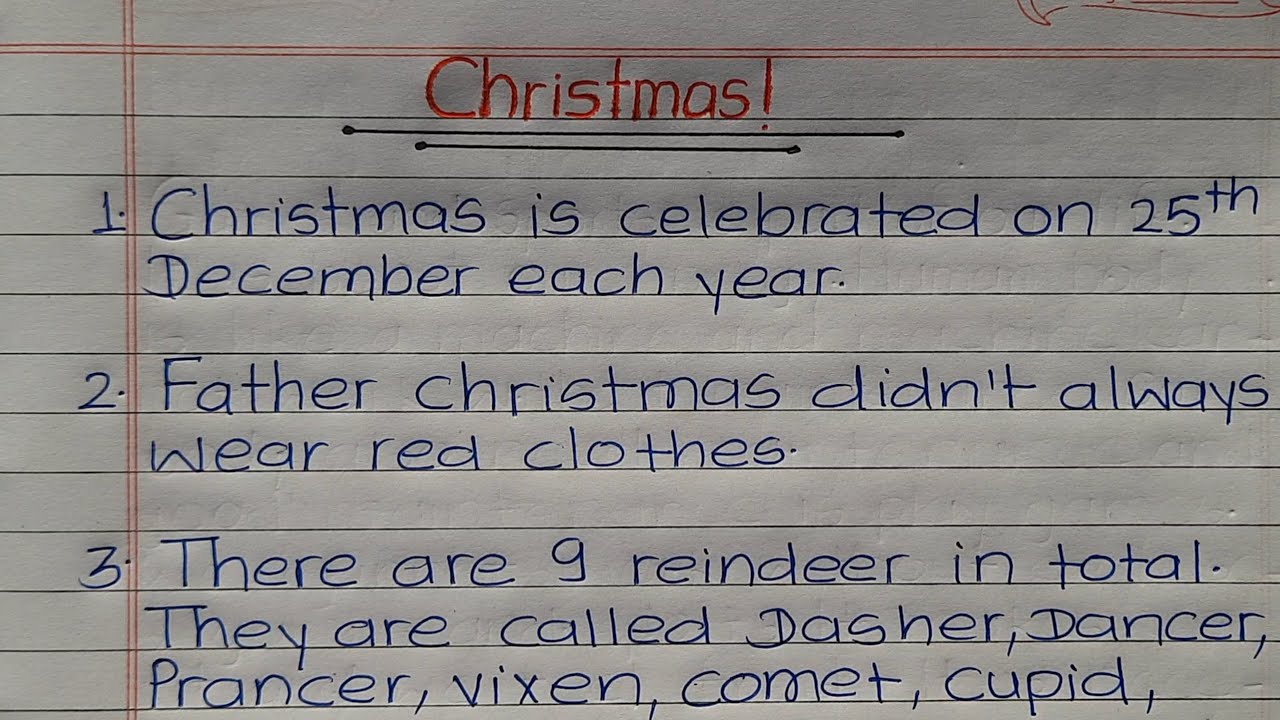 Christmas!
1. Christmas is celebrated on 25th
December each year.
2. Father christmas didn't always
wear red clothes.
3. There are 9 reindeer in total.
They are called Dasher, Dancer,
Prancer, vixen, comet, cupid,